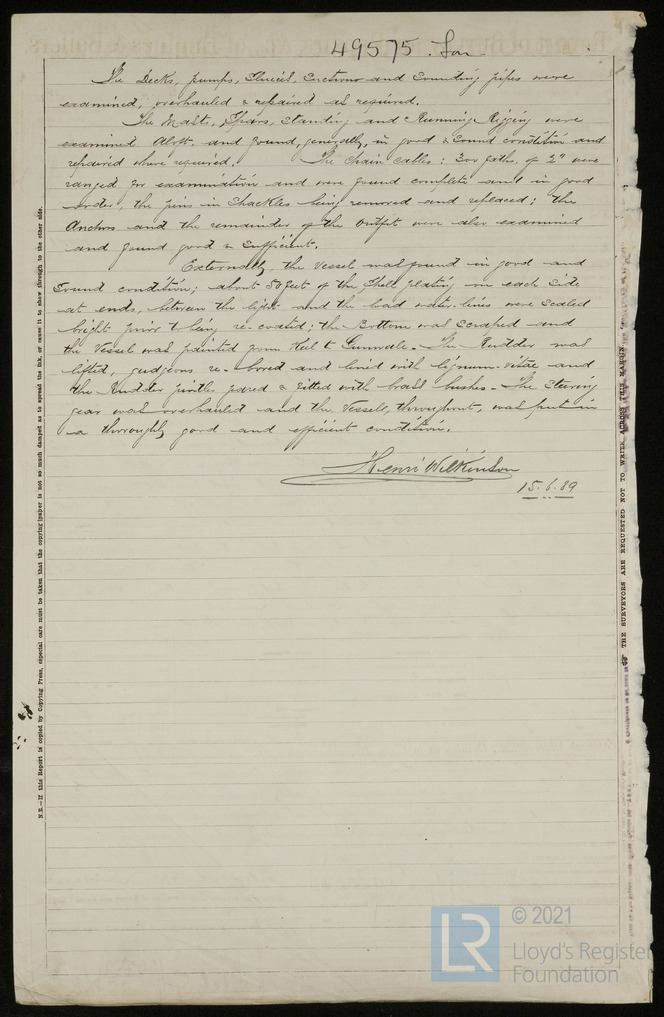 49575. Lon
The Decks, pumps, Sluices, Suctions and Sounding pipes were
examined, overhauled & repaired as required.
The Masts, Spars, Standing and Running Rigging were
examined Aloft. and found, generally, in good & Sound condition and
repaired where required. The Chain cables: 300 faths. of 2" were
ranged for examination and were found complete and in good
order, the pins in Shackles being removed and replaced; the
Anchors and the remainder of the Outfit were also examined
and found good & Sufficient.
Externally, the Vessel was found in good and
Sound condition; about 50 feet of the Shell plating on each Side
at ends, between the light and the load water-lines were Scaled
bright prior to being re-coated; the Bottom was Scraped and
the Vessel was painted from Keel to Gunwale. The Rudder was
lifted, gudgeons re-bored and lined with lignum-vitae and
the Rudder pintles pared & fitted with brass bushes. The Steering
gear was overhauled and the Vessel, throughout, was put in
a thoroughly good and efficient condition.
Henri Wilkinson
15.6.89
N.B.—If this Report is copied by Copying Press, especial care must be taken that the copying paper is not so much damped as to spread the ink, or cause it to show through to the other side.
THE SURVEYORS ARE REQUESTED NOT TO WRITE ACROSS THIS MARGIN.
LR
© 2021
Lloyd's Register
Foundation